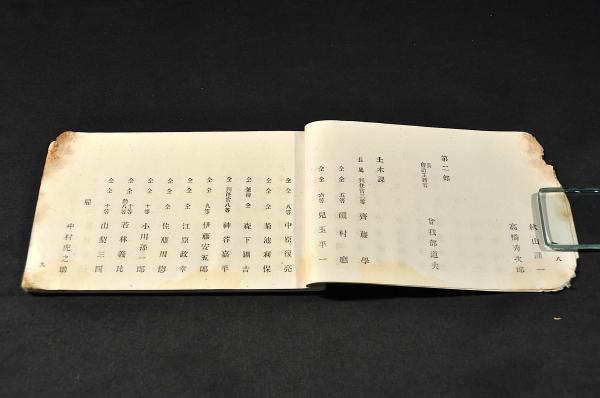 八
秋山謙一
高橋秀次郎
第二部
長
曾我部道夫
土木課
長 属 判任官三等 齊藤學
仝 仝 五等
仝 仝 六等 兒玉平一
仝 仝 八等 中原復亮
仝 仝 菊池利保
仝 仝 森下
仝 判任官八等 神谷嘉平
仝 仝 九等 伊藤安五郎
仝 仝 江原政幸
仝 仝 佐藤周悠
仝 仝 十等 小川
仝 仝 十等 若林義
仝 仝 十等 山梨三四
雇
中村虎之
九